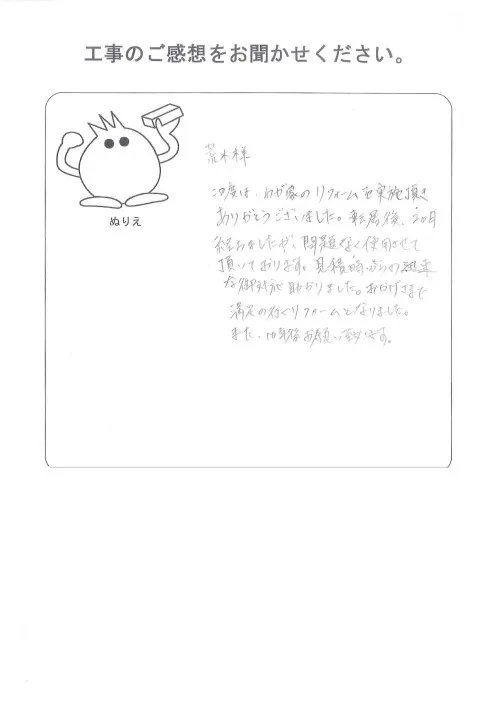 工事のご感想をお聞かせください。
ぬりえ
荒木様
この度は、わが家のリフォームを実施頂き
ありがとうございました。転居後、2ヶ月
経ちましたが、問題なく使用させて
頂いております。見積時からの迅速
な御対応助かりました。おかげさまで
満足の行くリフォームとなりました。
また、10年後お願い致します。